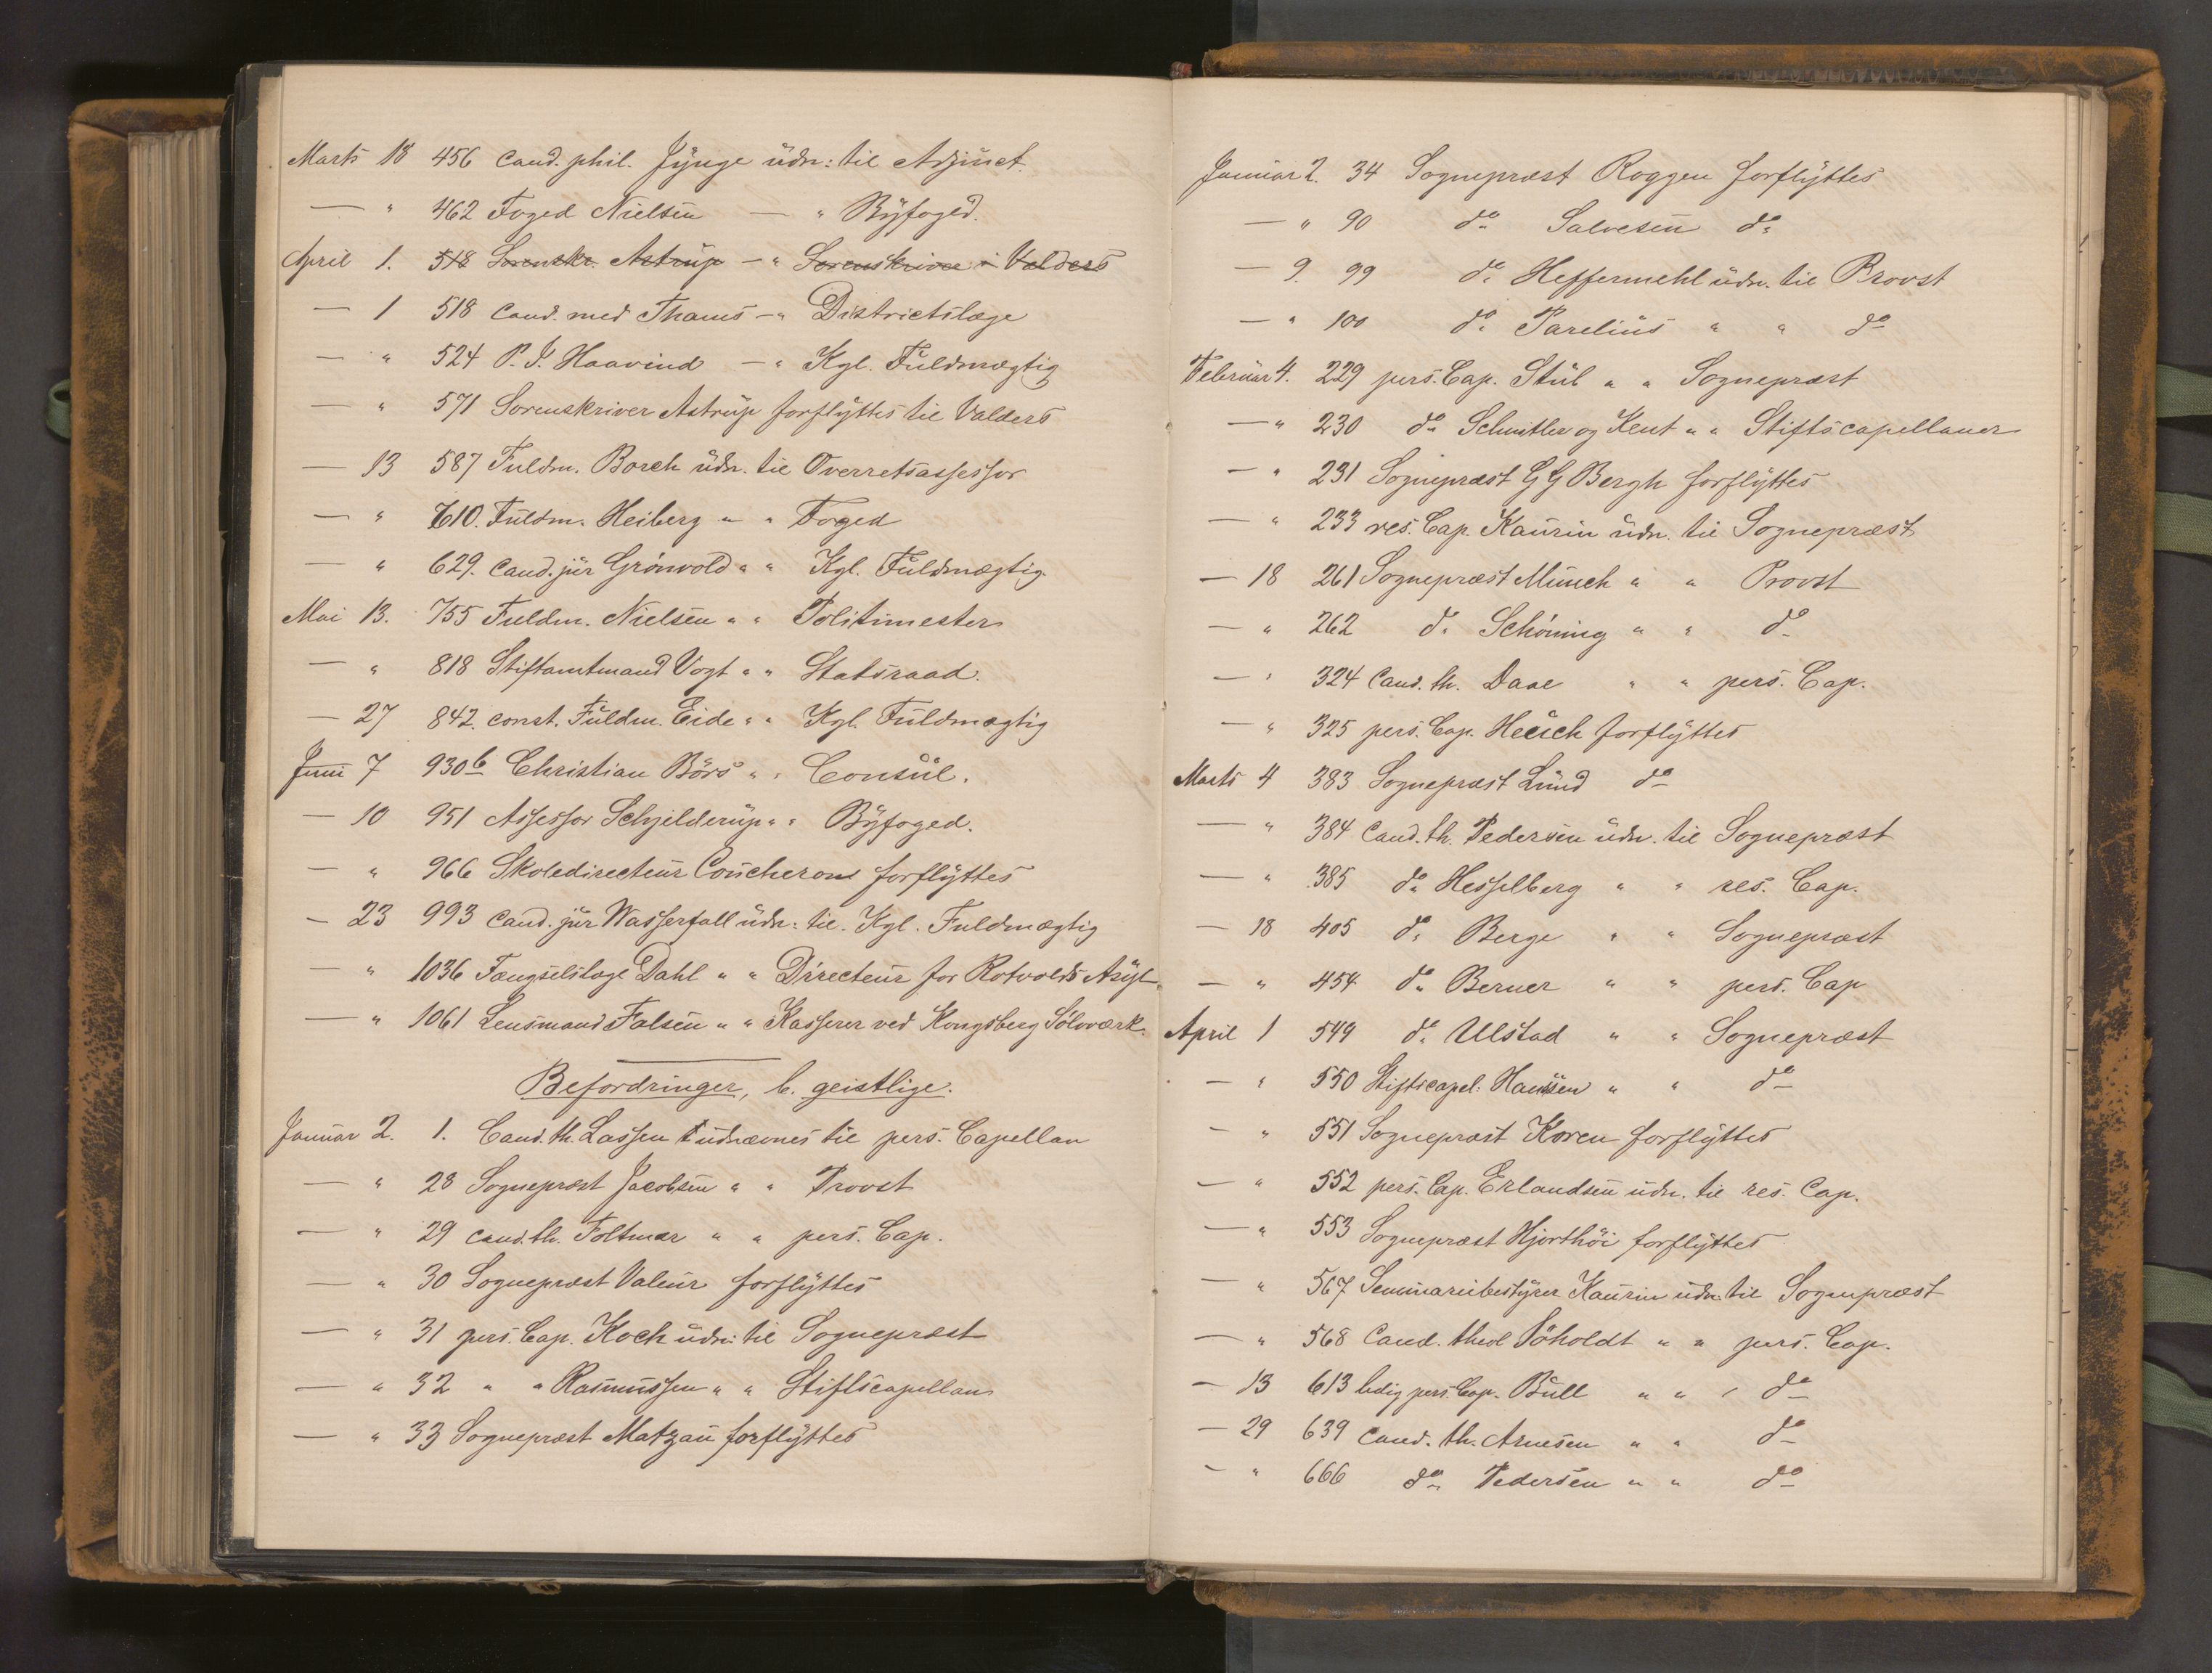 Marts 18 456 Cand. phil. Jynge udn: til Adjunct.
— " 462 Foged Nielsen — " Byfoged.
April 1. 518 Sorenskr. Astrup — " Sorenskriver i Valders
— 1 518 Cand. med Thams — " Districtslæge
— " 524 P. J. Haavind — " Kgl. Fuldmægtig
— " 571 Sorenskriver Astrup forflyttes til Valders
— 13 587 Fuldm. Borch udn. til Overretsassessor
— " 610. Fuldm. Heiberg " " Foged
— " 629. Cand. jur Grönvold " " Kgl. Fuldmægtig.
Mai 13. 755 Fuldm. Nielsen " " Politimester
— " 818 Stiftamtmand Vogt " " Statsraad.
— 27 842. const. Fuldm. Eide " " Kgl. Fuldmægtig
Juni 7 930b Christian Börs " " Consul.
— 10 951 Assessor Schjelderup " " Byfoged.
— " 966 Skoledirecteur Coucheron forflyttes
— 23 993 Cand. jur Wasserfall udn: til. Kgl. Fuldmægtig
— " 1036 Fængselslæge Dahl " " Directeur for Rotvolds Asyl.
— " 1061 Lensmand Falsen " " Kasserer ved Kongsberg Sölvværk.
Befordringer, b. geistlige.
Januar 2. 1. Cand. th. Lassen udnævnes til pers. Capellan
— " 28 Sognepræst Jacobsen " " Provst
— " 29 Cand. th. Foltmar " " pers. Cap.
— " 30 Sognepræst Valeur forflyttes
— " 31 pers. Cap. Koch udn: til Sognepræst
— " 32 " " Rasmussen " " Stiftscapellan
— " 33 Sognepræst Matzau forflyttes
Januar 2. 34 Sognepræst Roggen forflyttes
— " 90 do Salvesen do
— 9. 99 do Heffermehl udn. til Provst
— " 100 do Parelius " " do
Februar 4. 229 pers. Cap. Stub " " Sognepræst
— " 230 do Schmitler og Kent " " Stiftscapellaner
— " 231 Sognepræst G G Bergh forflyttes
— " 233 res. Cap. Kaurin udn. til Sognepræst
— 18 261 Sognepræst Munch " " Provst
— " 262 do Schöning " " do
— " 324 Cand. th. Daae " " pers. Cap.
— " 325 pers. Cap. Heuch forflyttes
Marts 4 383 Sognepræst Lund do
— " 384 Cand. th. Pedersen udn. til Sognepræst
— " 385 do Hesselberg " " res. Cap.
— 18 405 do Berge " " Sognepræst
— " 454 do Berner " " pers. Cap
April 1 549 do Ulstad " " Sognepræst
— " 550 Stiftscapel. Hansen " " do
— " 551 Sognepræst Koren forflyttes
— " 552 pers. Cap. Erlandsen udn. til res. Cap.
— " 553 Sognepræst Hjorthöi forflyttes
— " 567 Seminariebestyrer Kaurin udn. til Sognepræst
— " 568 Cand. theol Söholdt " " pers. Cap.
— 13 613 ledig pers. Cap. Bull " " " do
— 29 639 Cand. th. Arnesen " " do
— " 666 do Pedersen " " do